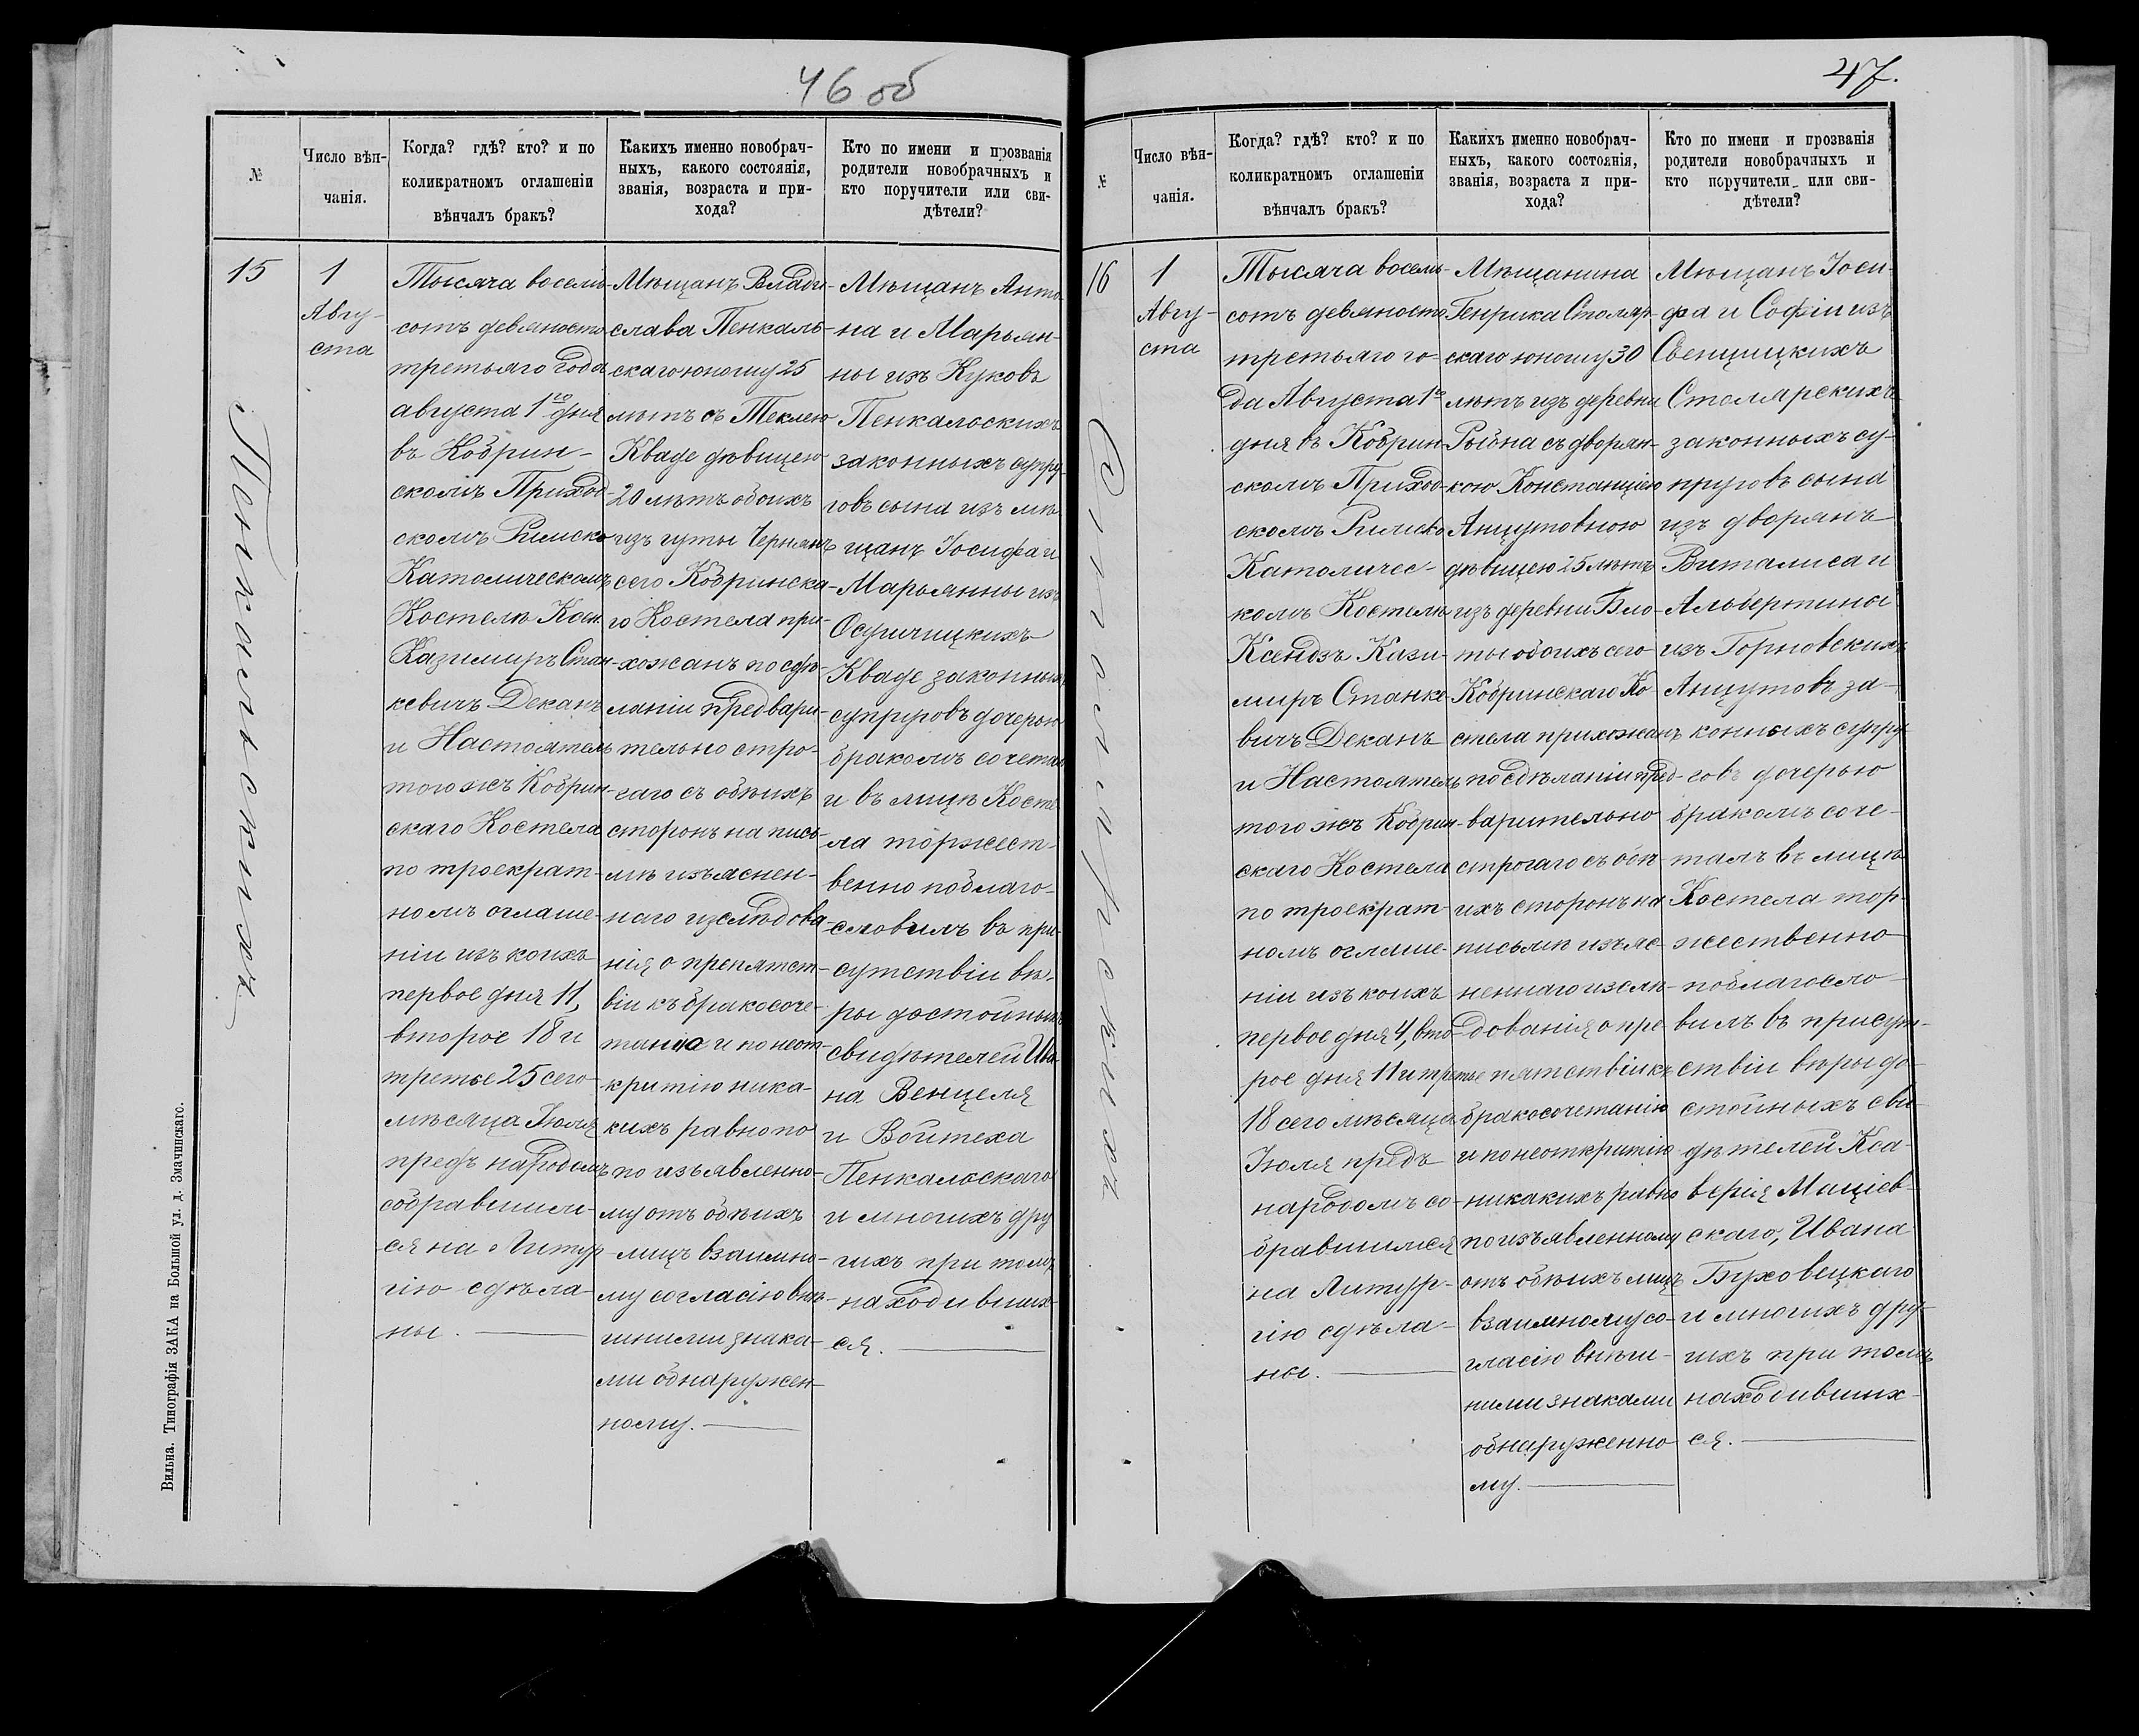 46 об
№
Число вѣн-
чанія.
Когда? гдѣ? кто? и по
коликратномъ оглашеніи
вѣнчалъ бракъ?
Какихъ именно новобрач-
ныхъ, какого состоянія,
званія, возраста и при-
хода?
Кто по имени и прозванія
родители новобрачныхъ и
кто поручители или сви-
дѣтели?
15
Пенкальскихъ
1
Авгу-
ста
Тысяча восемь-
сотъ девяносто
третьяго года
августа 1го дня
въ Кобрин-
скомъ Приход-
скомъ Римско
Католическомъ
Костелѣ Ксен.
Казимиръ Стан-
кевичъ Деканъ
и Настоятель
того жъ Кобрин-
скаго Костела
по троекрат-
номъ оглаше-
ніи изъ коихъ
первое дня 11,
второе 18 и
третье 25 сего
мѣсяца Іюля
предъ народомъ
собравшим-
ся на Литур-
гію сдѣла-
ны.
Мѣщанъ Влади-
слава Пенкаль-
скаго юношу 25
лѣтъ съ Теклею
Кваде дѣвицею
20 лѣтъ обоихъ
изъ гуты Чернянъ
сего Кобринска-
го Костела при-
хожанъ по сдѣ-
ланіи предвари-
тельно стро-
гаго съ обѣихъ
сторонъ на пись-
мѣ изъяснен-
наго изслѣдова-
нія о препятст-
віи къ бракосоче-
танію и по неот-
критію ника-
кихъ равно по
по изъявленно-
му отъ обѣихъ
лицъ взаимно-
му согласію внѣ-
шними знака-
ми обнаружен-
ному.
Мѣщанъ Анто-
на и Марьян-
ны изъ Куковъ
Пенкальскихъ
законныхъ супру-
говъ сына изъ мѣ-
щанъ Іосифа и
Марьянны изъ
Осушицкихъ
Кваде законныхъ
супруговъ дочерью
бракомъ сочеталъ
и въ лицѣ Косте-
ла торжест-
венно поблаго-
словилъ въ при-
сутствіи вѣ-
ры достойныхъ
свидѣтелей Ива-
на Венцеля
и Войтеха
Пенкальскаго
и многихъ дру-
гихъ при томъ
находивших-
ся.
Вильна. Типографія ЗАКА на Большой ул. д. Змачинскаго.
47.
№
Число вѣн-
чанія.
Когда? гдѣ? кто? и по
коликратномъ оглашеніи
вѣнчалъ бракъ?
Какихъ именно новобрач-
ныхъ, какого состоянія,
званія, возраста и при-
хода?
Кто по имени и прозванія
родители новобрачныхъ и
кто поручители или сви-
дѣтели?
16
Столярскихъ
1
Авгу-
ста
Тысяча восемь-
сотъ девяносто
третьяго го-
да Августа 1го
дня въ Кобрин-
скомъ Приход-
скомъ Римско
Католичес-
комъ Костелѣ
Ксендзъ Кази-
миръ Станке-
вичъ Деканъ
и Настоятель
того жъ Кобрин-
скаго Костела
по троекрат-
номъ оглаше-
ніи изъ коихъ
первое дня 4, вто-
рое дня 11 и третье
18 сего мѣсяца
Іюля предъ
народомъ со-
бравшимся
на Литур-
гію сдѣла-
ны.
Мѣщанина
Генрика Столяр-
скаго юношу 30
лѣтъ изъ деревни
Рыбна съ дворян-
кою Констанціею
Анцутовною
дѣвицею 25 лѣтъ
изъ деревни Бло-
ты обоихъ сего
Кобринскаго Ко-
стела прихожанъ
по сдѣланіи пред-
варительно
строгаго съ обѣ-
ихъ сторонъ на
письмѣ изъяс-
неннаго изслѣ-
дованія о пре-
пятствіи къ
бракосочетанію
и по неоткритію
никакихъ равно
по изъявленному
отъ обѣихъ лицъ
взаимному со-
гласію внѣш-
ними знаками
обнаруженно
му.
Мѣщанъ Іоси-
фа и Софіи изъ
Свенцицкихъ
Столярскихъ
законныхъ су-
пруговъ сына
изъ дворянъ
Виталиса и
Альбертины
изъ Горновскихъ
Анцутовъ за-
конныхъ супру-
говъ дочерью
бракомъ соче-
талъ въ лицѣ
Костела тор-
жественно
поблагосло-
вилъ въ присут-
ствіи вѣры до-
стойныхъ сви-
дѣтелей Кса-
верія Маціев-
скаго, Ивана
Буховецкаго
и многихъ дру-
гихъ при томъ
находивших-
ся.